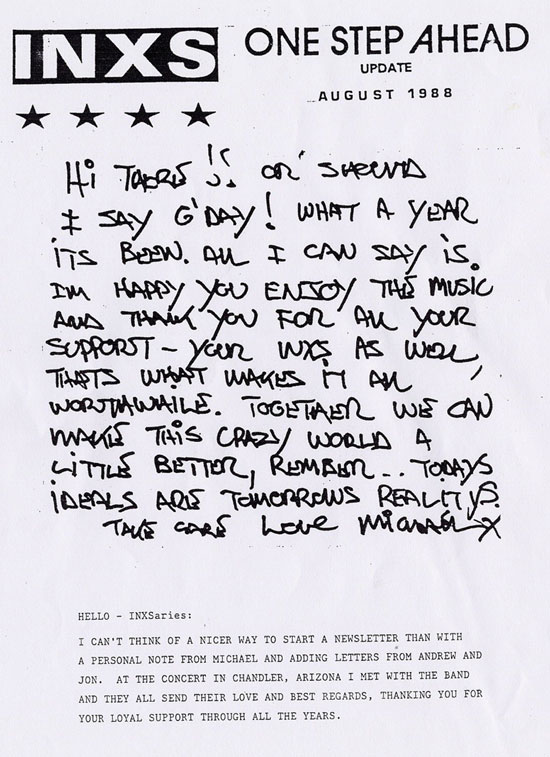 INXS
ONE STEP AHEAD
UPDATE
AUGUST 1988
Hi THERE !! OR SHOULD
I SAY G'DAY! WHAT A YEAR
ITS BEEN. ALL I CAN SAY IS.
IM HAPPY YOU ENJOY THE MUSIC
AND THANK YOU FOR ALL YOUR
SUPPORT - YOUR INXS AS WELL,
THATS WHAT MAKES IT ALL
WORTHWHILE. TOGETHER WE CAN
MAKE THIS CRAZY WORLD A
LITTLE BETTER, REMBER... TODAYS
IDEALS ARE TOMORROWS REALITYS.
TAKE CARE Love Michael X
HELLO - INXSaries:
I CAN'T THINK OF A NICER WAY TO START A NEWSLETTER THAN WITH
A PERSONAL NOTE FROM MICHAEL AND ADDING LETTERS FROM ANDREW AND
JON. AT THE CONCERT IN CHANDLER, ARIZONA I MET WITH THE BAND
AND THEY ALL SEND THEIR LOVE AND BEST REGARDS, THANKING YOU FOR
YOUR LOYAL SUPPORT THROUGH ALL THE YEARS.